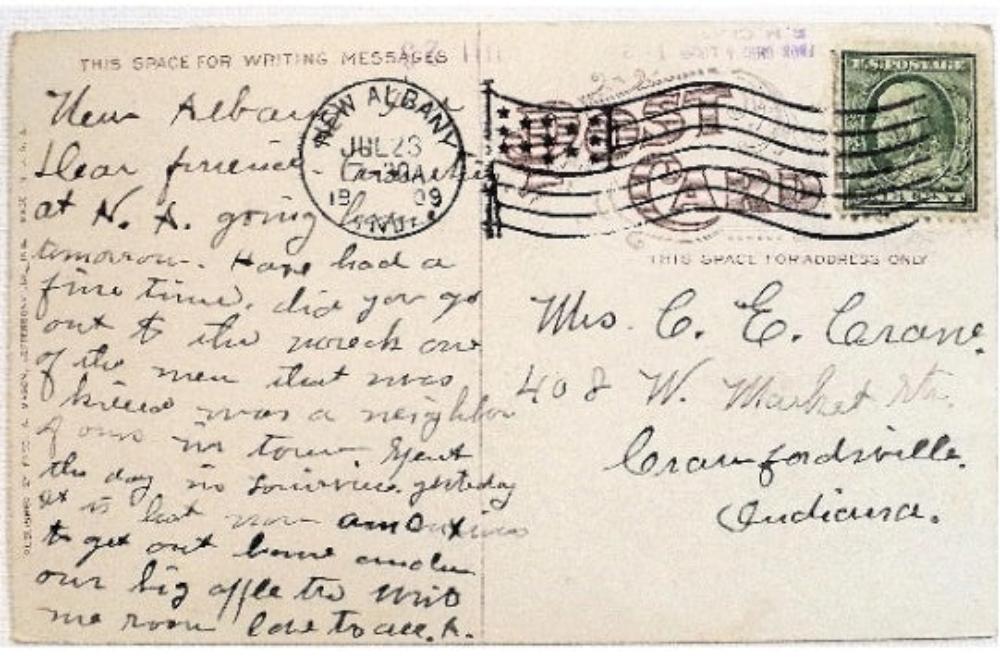 THIS SPACE FOR WRITING MESSAGES
New Albany
Dear friend.
at N. A. going home
tomorrow. Have had a
fine time. did you go
out to the wreck one
of the men that was
killed was a neighbor
of ours in town. Spent
the day in Louisville yesteday
it is hot now am anxious
to get out home under
our big apple tre Writ
me soon Love to all. A.
NEW ALBANY
JUL 23
30A
19 09
IND.
POST
CARD
U.S. POSTAGE
THIS SPACE FOR ADDRESS ONLY
Mrs. C. E. Crane.
408 W. Market Str.
Crawfordsville.
Indiana.